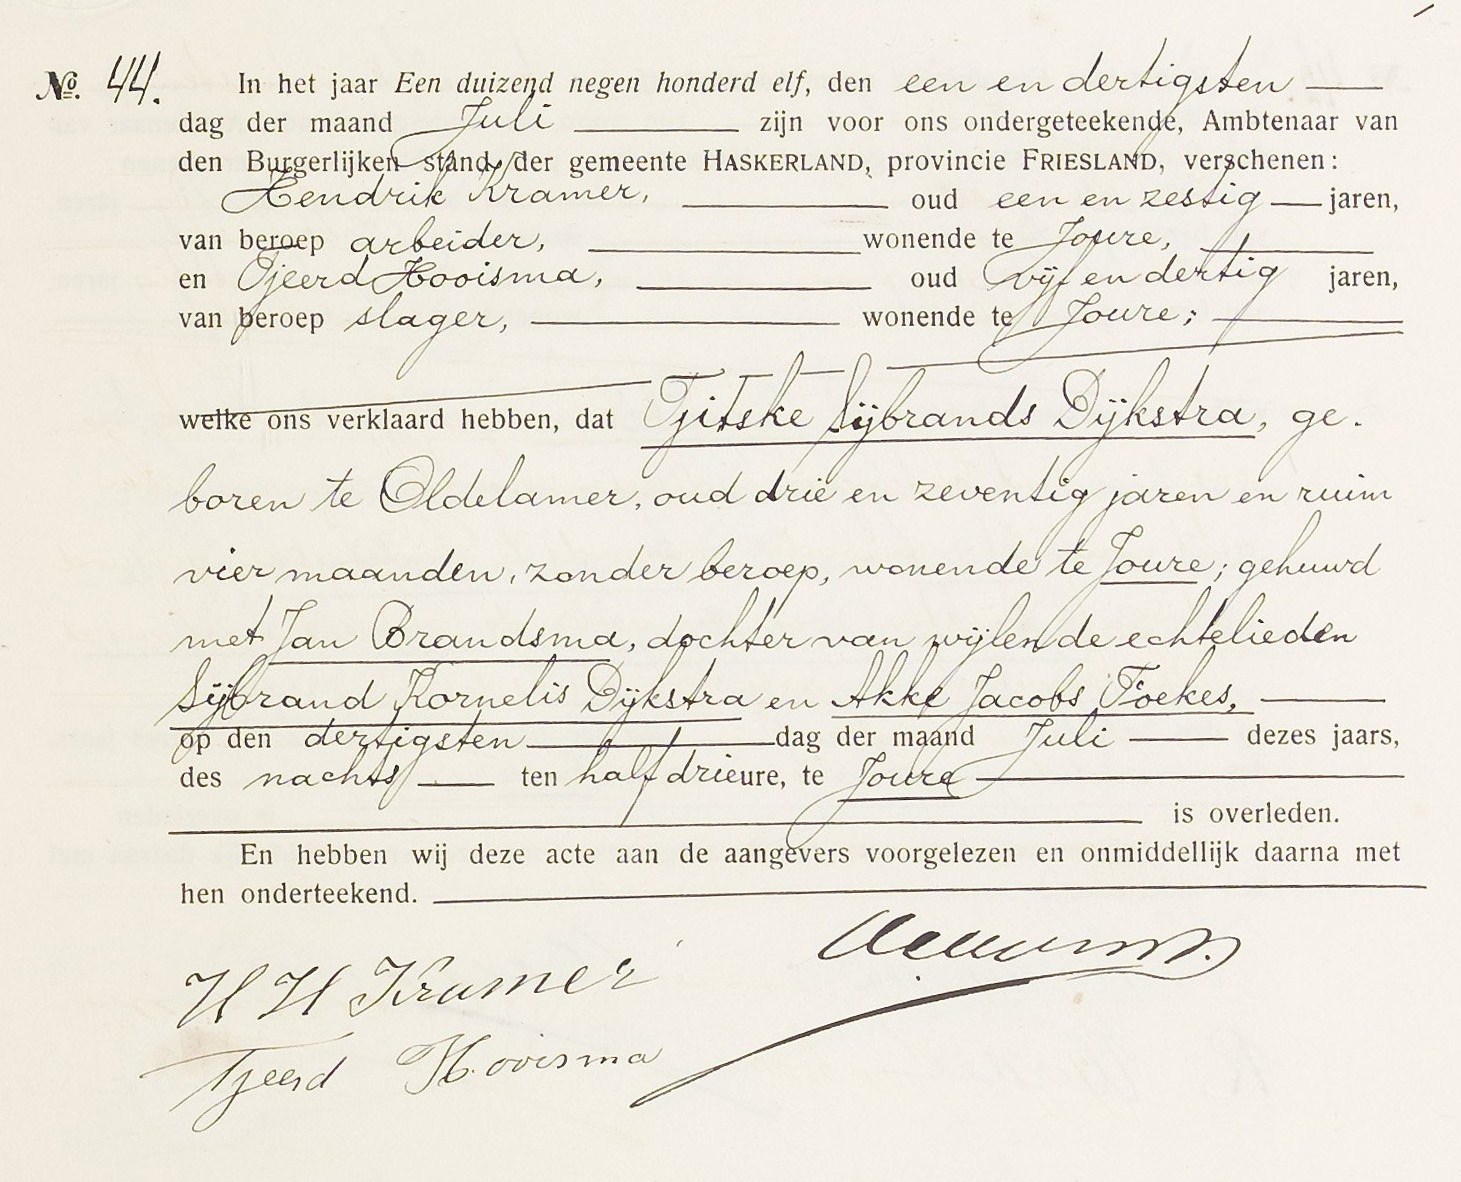 No. 44. In het jaar Een duizend negen honderd elf, den een en dertigsten
dag der maand Juli zijn voor ons ondergeteekende, Ambtenaar van
den Burgerlijken stand der gemeente HASKERLAND, provincie FRIESLAND, verschenen:
Hendrik Kramer, oud een en zestig jaren,
van beroep arbeider, wonende te Joure,
en Tjeerd Hooisma, oud vijf en dertig jaren,
van beroep slager, wonende te Joure;
welke ons verklaard hebben, dat Tjitske Sijbrands Dijkstra, ge-
boren te Oldelamer, oud drie en zeventig jaren en ruim
vier maanden, zonder beroep, wonende te Joure; gehuwd
met Jan Brandsma, dochter van wijlen de echtelieden
Sijbrand Kornelis Dijkstra en Akke Jacobs Foekes,
op den dertigsten dag der maand Juli dezes jaars,
des nachts ten half drie ure, te Joure
is overleden.
En hebben wij deze acte aan de aangevers voorgelezen en onmiddellijk daarna met
hen onderteekend.
H H Kramer
Tjeerd Hooisma